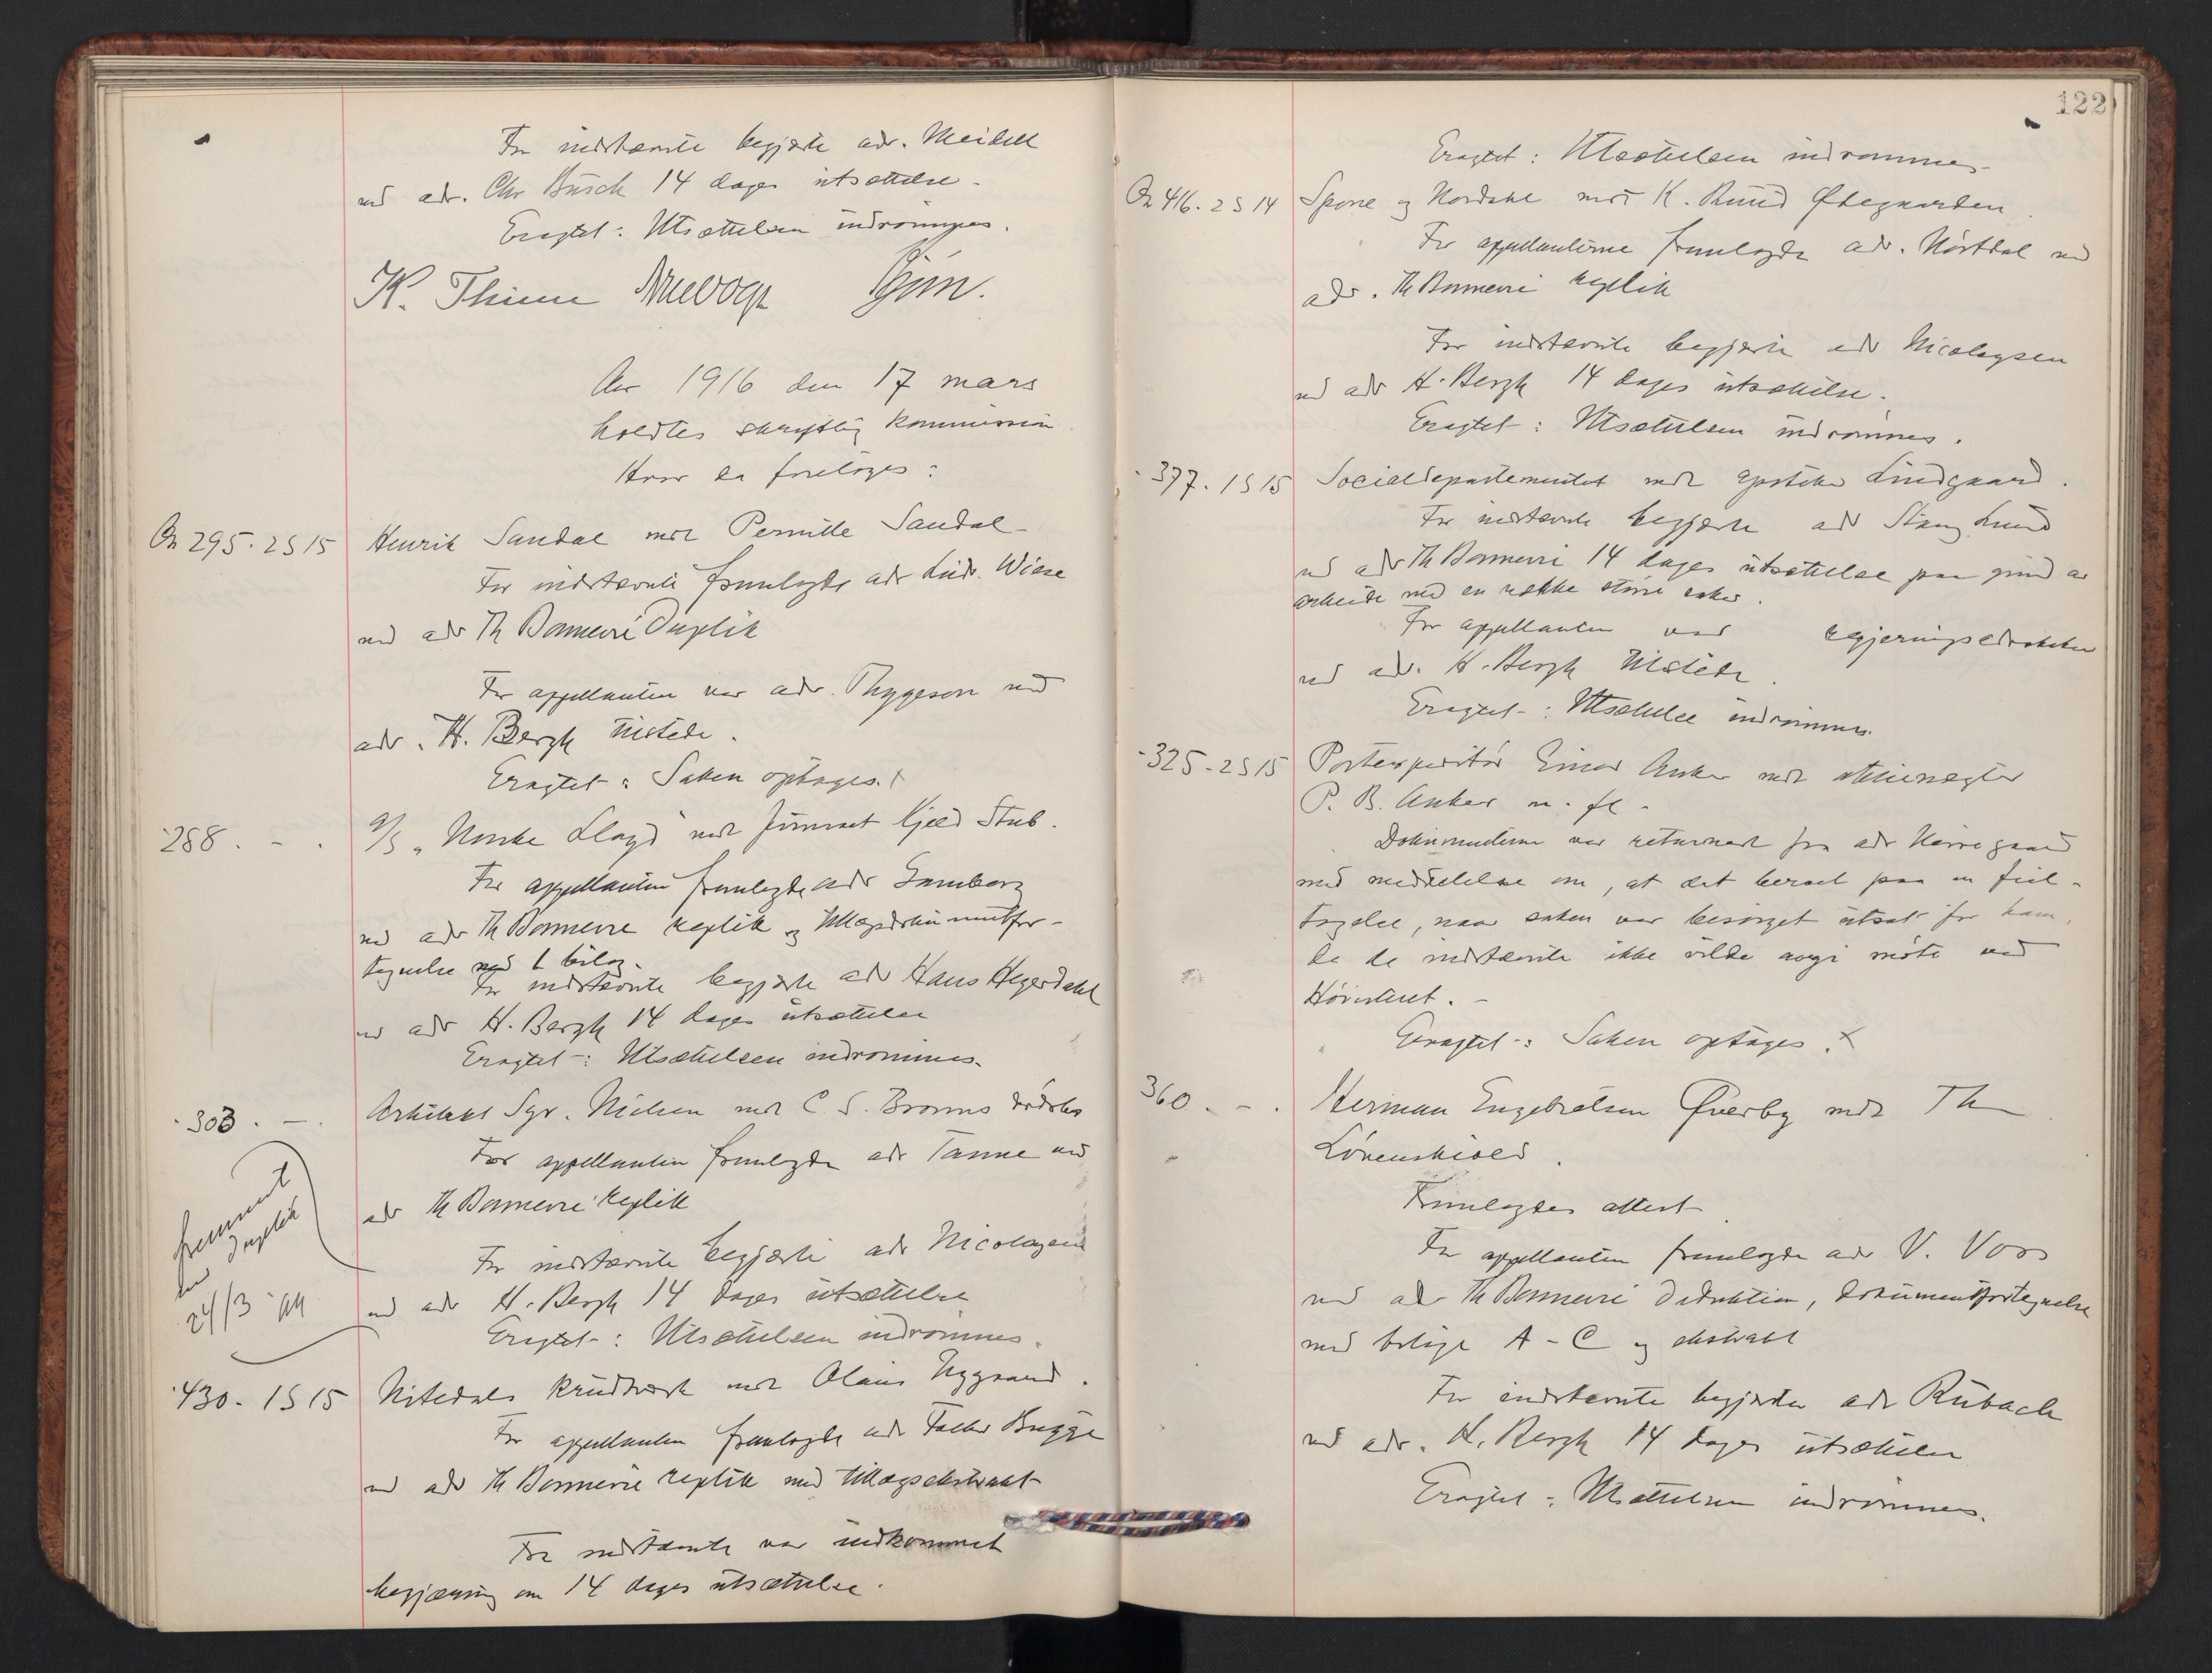 For indstevnte begjærte adv. Meidell
ved adv. Chr Busch 14 dages utsættelse.
Eragtet: Utsættelsen indrømmes.
K. Thinn
Aar 1916 den 17 mars
holdtes skriftlig kommission
Hvor da foretoges:
On 295. 2 S 15 Henrik Sandal mot Pernille Sandal
For indstevnte fremlagde adv Ludv. Wiese
ved adv Th Bonnevie Duplik
For appellanten var adv. Thygeson ved
adv. H. Bergh tilstede.
Eragtet: Saken optages.
288. - . A/S "Norske Lloyd" mot Kjeld Stub.
For appellanten fremlagde adv
ved adv Th Bonnevie replik og tillægsdokumentfor-
tegnelse med 1 bilag.
For indstevnte begjærte adv Hans Hegerdahl
ved adv H. Bergh 14 dages utsættelse
Eragtet: Utsættelsen indrømmes.
303. -. Arkitekt Sgr. Nielsen mot C. S. Broms dødsbo
For appellanten fremlagde adv Tanne ved
adv Th Bonnevie replik
fremsat
duplik
den
24/3
For indstevnte begjærte adv Nicolaysen
ved adv H. Bergh 14 dages utsættelse
Eragtet: Utsættelsen indrømmes.
430. 1 S 15 Nitedals Krudtværk mot Olaus Nygaard.
For appellanten fremlagde adv Bugge
ved adv Th Bonnevie replik med tillægsekstrakt
For indstevnte var indkommet
begjæring om 14 dages utsættelse.
122
Eragtet: Utsættelsen indrømmes.
On 416. 2 S 14 Spone og Nordahl mot K. Ruud Øhegaarden.
For appellanterne fremlagde adv. Hørtdal ved
adv. Th Bonnevie replik
For indstevnte begjærte adv Nicolaysen
ved adv H. Bergh 14 dages utsættelse.
Eragtet: Utsættelsen indrømmes.
377. 1 S 15 Socialdepartementet mot apoteker Lindgaard.
For indstevnte begjærte adv Stang Lund
ved adv Th Bonnevie 14 dages utsættelse paa grund av
arbeide med en række større saker.
For appellanten var regjeringsadvokaten
ved adv. H. Bergh tilstede.
Eragtet: Utsættelse indrømmes.
325. 2 S 15 Postexpeditør Einar Anker mot
P. B. Anker m. fl.
Dokumenterne var returnert fra adv Nørregaard
med meddelelse om, at det beroet paa en feil-
tagelse, naar saken var besørget utsat for ham,
da de indstevnte ikke vilde avgi møte ved
Høiesteret. -
Eragtet: Saken optages. x
360. - . Herman Engebretsen Øverby mot Th
Løvenskiold.
Fremlagdes attest
For appellanten fremlagde adv V. Voss
ved adv Th Bonnevie deduktion, dokumentfortegnelse
med bilage A - C og ekstrakt
For indstevnte begjærte adv Rubach
ved adv. H. Bergh 14 dages utsættelse
Eragtet: Utsættelsen indrømmes.